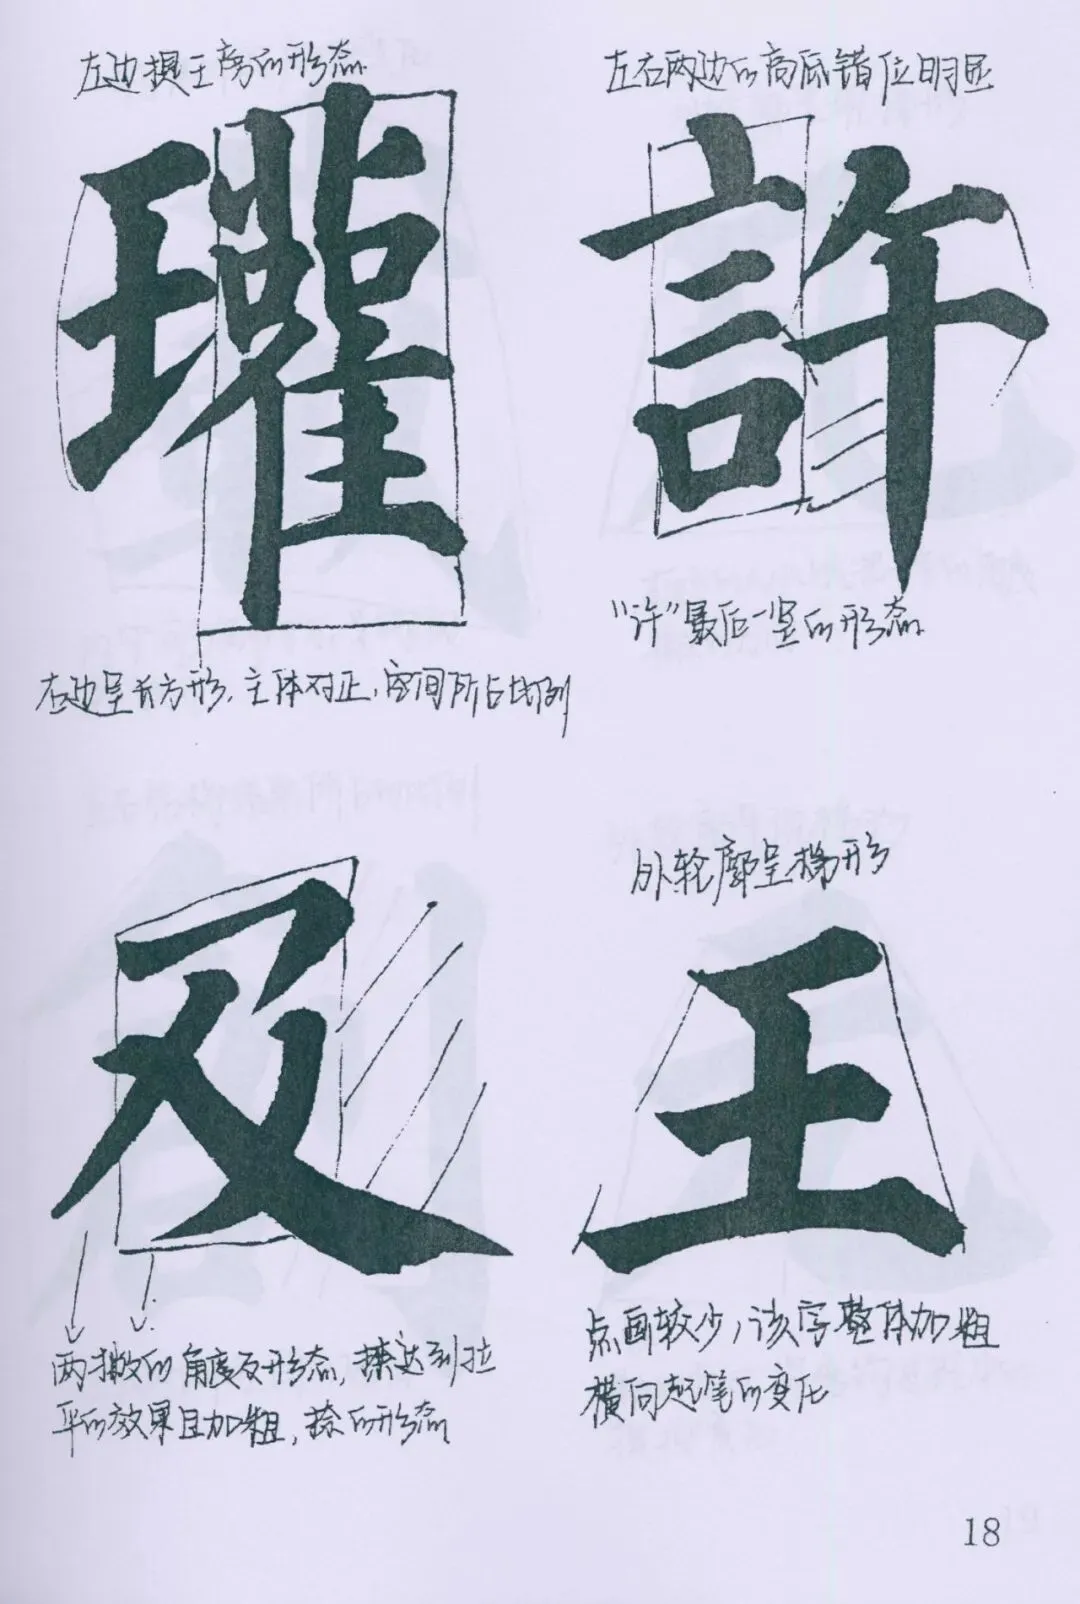 左边提王旁的形态
瓘
右边呈长方形，主体对正，空间所占比例
左右两边的高低错位明显
許
“许”最后一竖的形态
及
两撇的角度及形态，捺达到拉
平的效果且加粗，捺的形态
外轮廓呈梯形
王
点画较少，该字整体加粗
横向起笔的变化
18